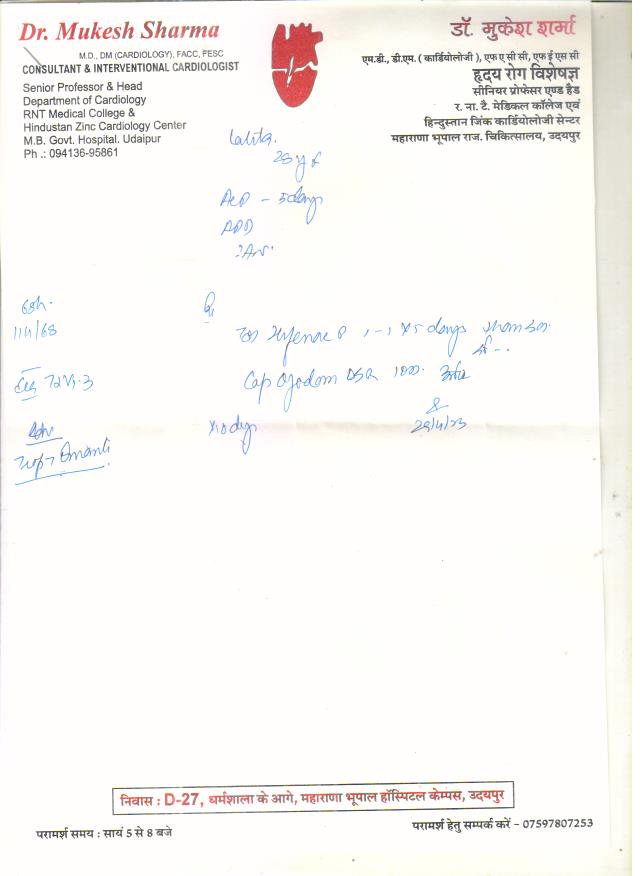 Dr. Mukesh Sharma
M.D., DM (CARDIOLOGY), FACC, FESC
CONSULTANT & INTERVENTIONAL CARDIOLOGIST
Senior Professor & Head
Department of Cardiology
RNT Medical College &
Hindustan Zinc Cardiology Center
M.B. Govt. Hospital. Udaipur
Ph .: 094136-95861
डॉ. मुकेश शर्मा
एम.डी., डी.एम. ( कार्डियोलोजी ), एफ ए सी सी, एफ ई एस सी
हृदय रोग विशेषज्ञ
सीनियर प्रोफेसर एण्ड हैड
र. ना. टै. मेडिकल कॉलेज एवं
हिन्दुस्तान जिंक कार्डियोलोजी सेन्टर
महाराणा भूपाल राज. चिकित्सालय, उदयपुर
Lalita.
28 y f
- 5 days
111/68
1-1 x 5 days
Cap DSR
x 10 days
निवास : D-27, धर्मशाला के आगे, महाराणा भूपाल हॉस्पिटल केम्पस, उदयपुर
परामर्श समय : सायं 5 से 8 बजे
परामर्श हेतु सम्पर्क करें - 07597807253